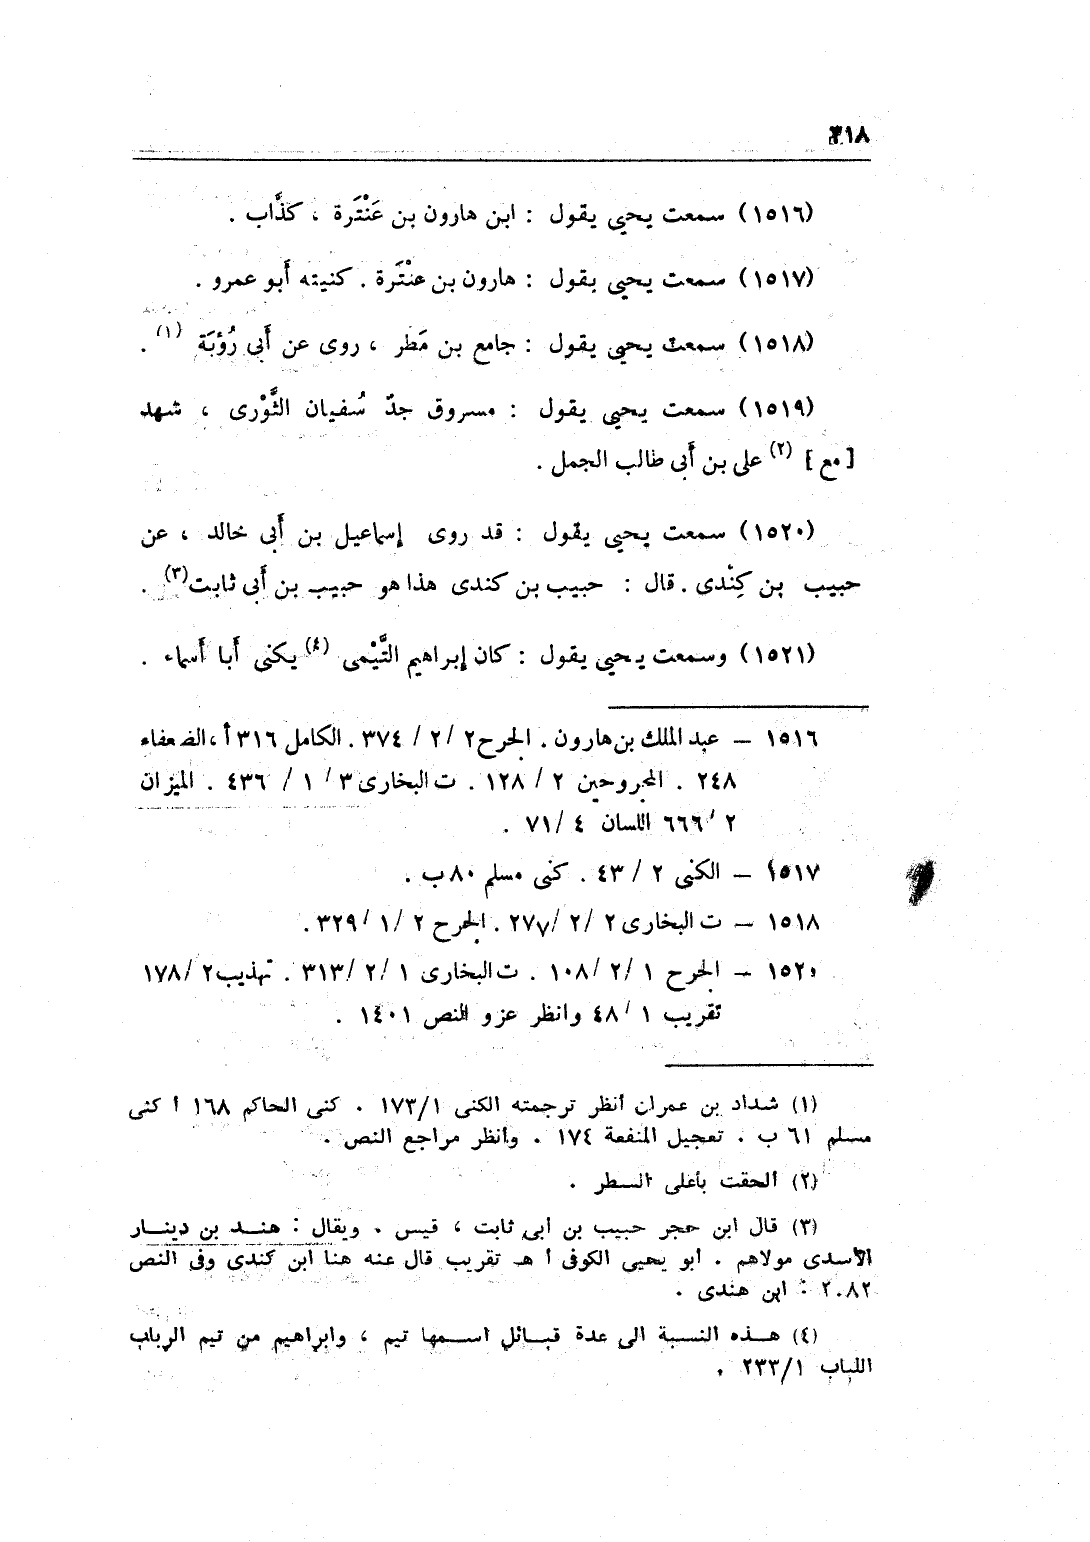 ٣١٨
(١٥١٦) سمعت يحيى يقول : ابن هارون بن عَنْتَرة ، كذَّاب .
(١٥١٧) سمعت يحيى يقول : هارون بن عنْتَرة . كنيته أَبو عمرو .
(١٥١٨) سمعت يحيى يقول : جامع بن مَطر ، روى عن أَبى رُؤبَة (١) .
(١٥١٩) سمعت يحيى يقول : مسروق جدّ سُفيان الثَّوْرى ، شهد
[ مع ] (٢) على بن أَبى طالب الجمل .
(١٥٢٠) سمعت يحيى يقول : قد روى إسماعيل بن أَبى خالد ، عن
حبيب بن كِنْدى . قال : حبيب بن كندى هذا هو حبيب بن أَبى ثابت (٣) .
(١٥٢١) وسمعت يحيى يقول : كان إبراهيم التَّيْمى (٤) يكنى أَبا أَسماء .
١٥١٦ – عبد الملك بن هارون . الجرح ٢ / ٢ / ٣٧٤ . الكامل ٣١٦ أ ، الضعفاء
٢٤٨ . المجروحين ٢ / ١٢٨ . ت البخارى ٣ / ١ / ٤٣٦ . الميزان
٢ / ٦٦٦ اللسان ٤ / ٧١ .
١٥١٧ – الكنى ٢ / ٤٣ . كنى مسلم ٨٠ ب .
١٥١٨ – ت البخارى ٢ / ٢ / ٢٧٧ . الجرح ٢ / ١ / ٣٢٩ .
١٥٢٠ – الجرح ١ / ٢ / ١٠٨ . ت البخارى ١ / ٢ / ٣١٣ . تهذيب ٢ / ١٧٨
تقريب ١ / ٤٨ وانظر عزو النص ١٤٠١ .
(١) شداد بن عمران أنظر ترجمته الكنى ١/١٧٣ . كنى الحاكم ١٦٨ أ كنى
مسلم ٦١ ب . تعجيل المنفعة ١٧٤ . وأنظر مراجع النص .
(٢) ألحقت بأعلى السطر .
(٣) قال ابن حجر حبيب بن أبى ثابت ، قيس . ويقال : هند بن دينار
الأسدى مولاهم . أبو يحيى الكوفى أ هـ تقريب قال عنه هنا ابن كندى وفى النص
٢٠٨٢ : ابن هندى .
(٤) هذه النسبة الى عدة قبائل اسمها تيم ، وابراهيم من تيم الرباب
اللباب ١/٢٣٣ .